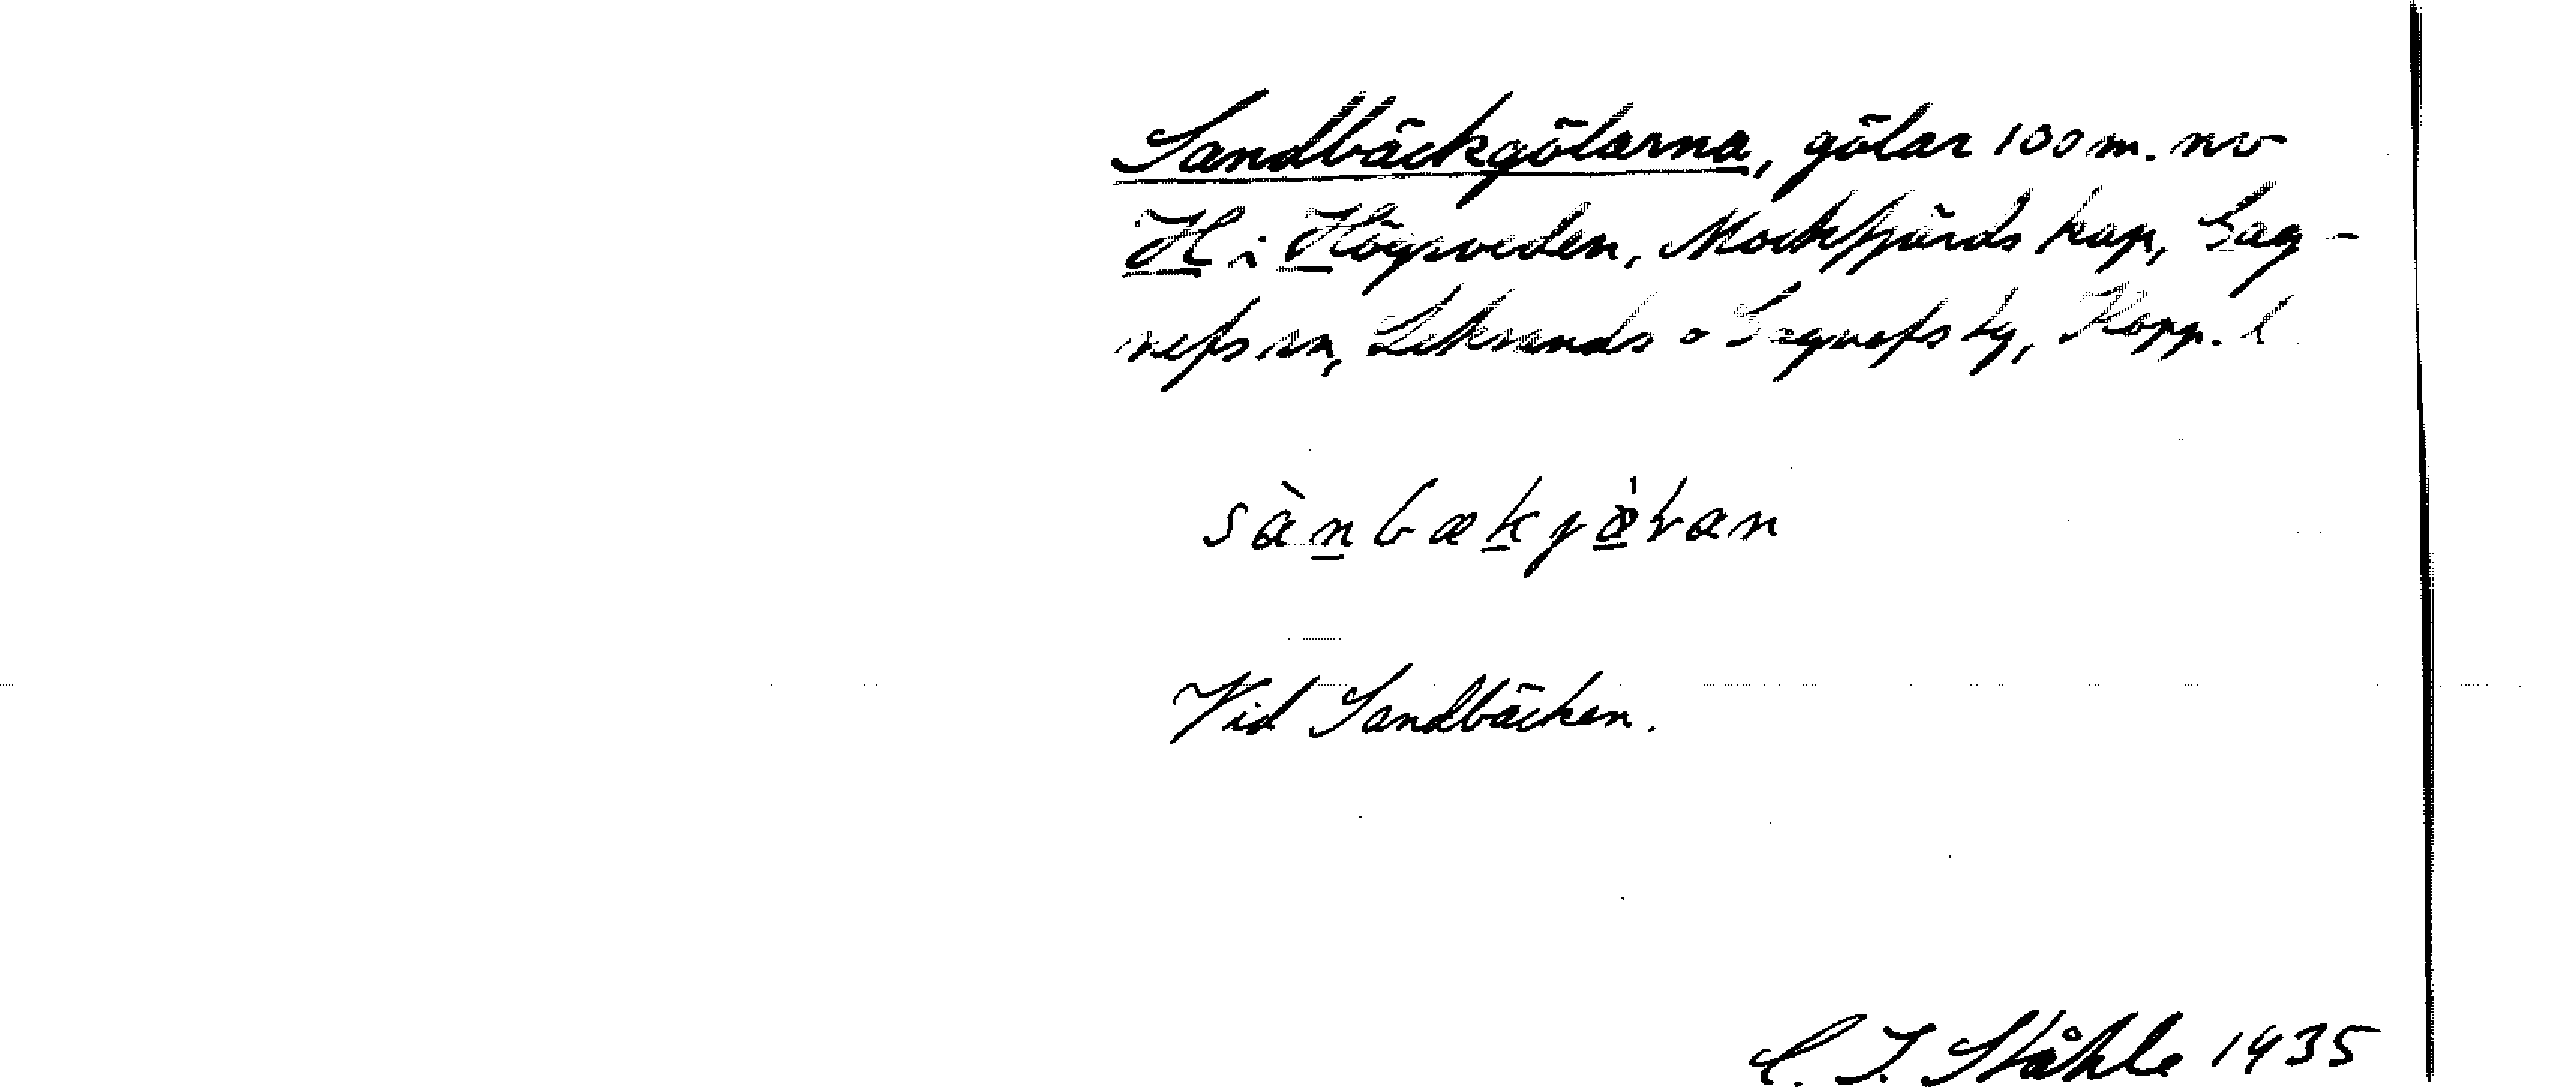 Sandbäckgölarna, gölar 100 m. nv
H i Högsveden, Mockfjärds kap, Gag-
nefs sn, Leksands o Gagnefs tg, Kopp. l
Vid Sandbäcken.
C. I. Ståhle 1935